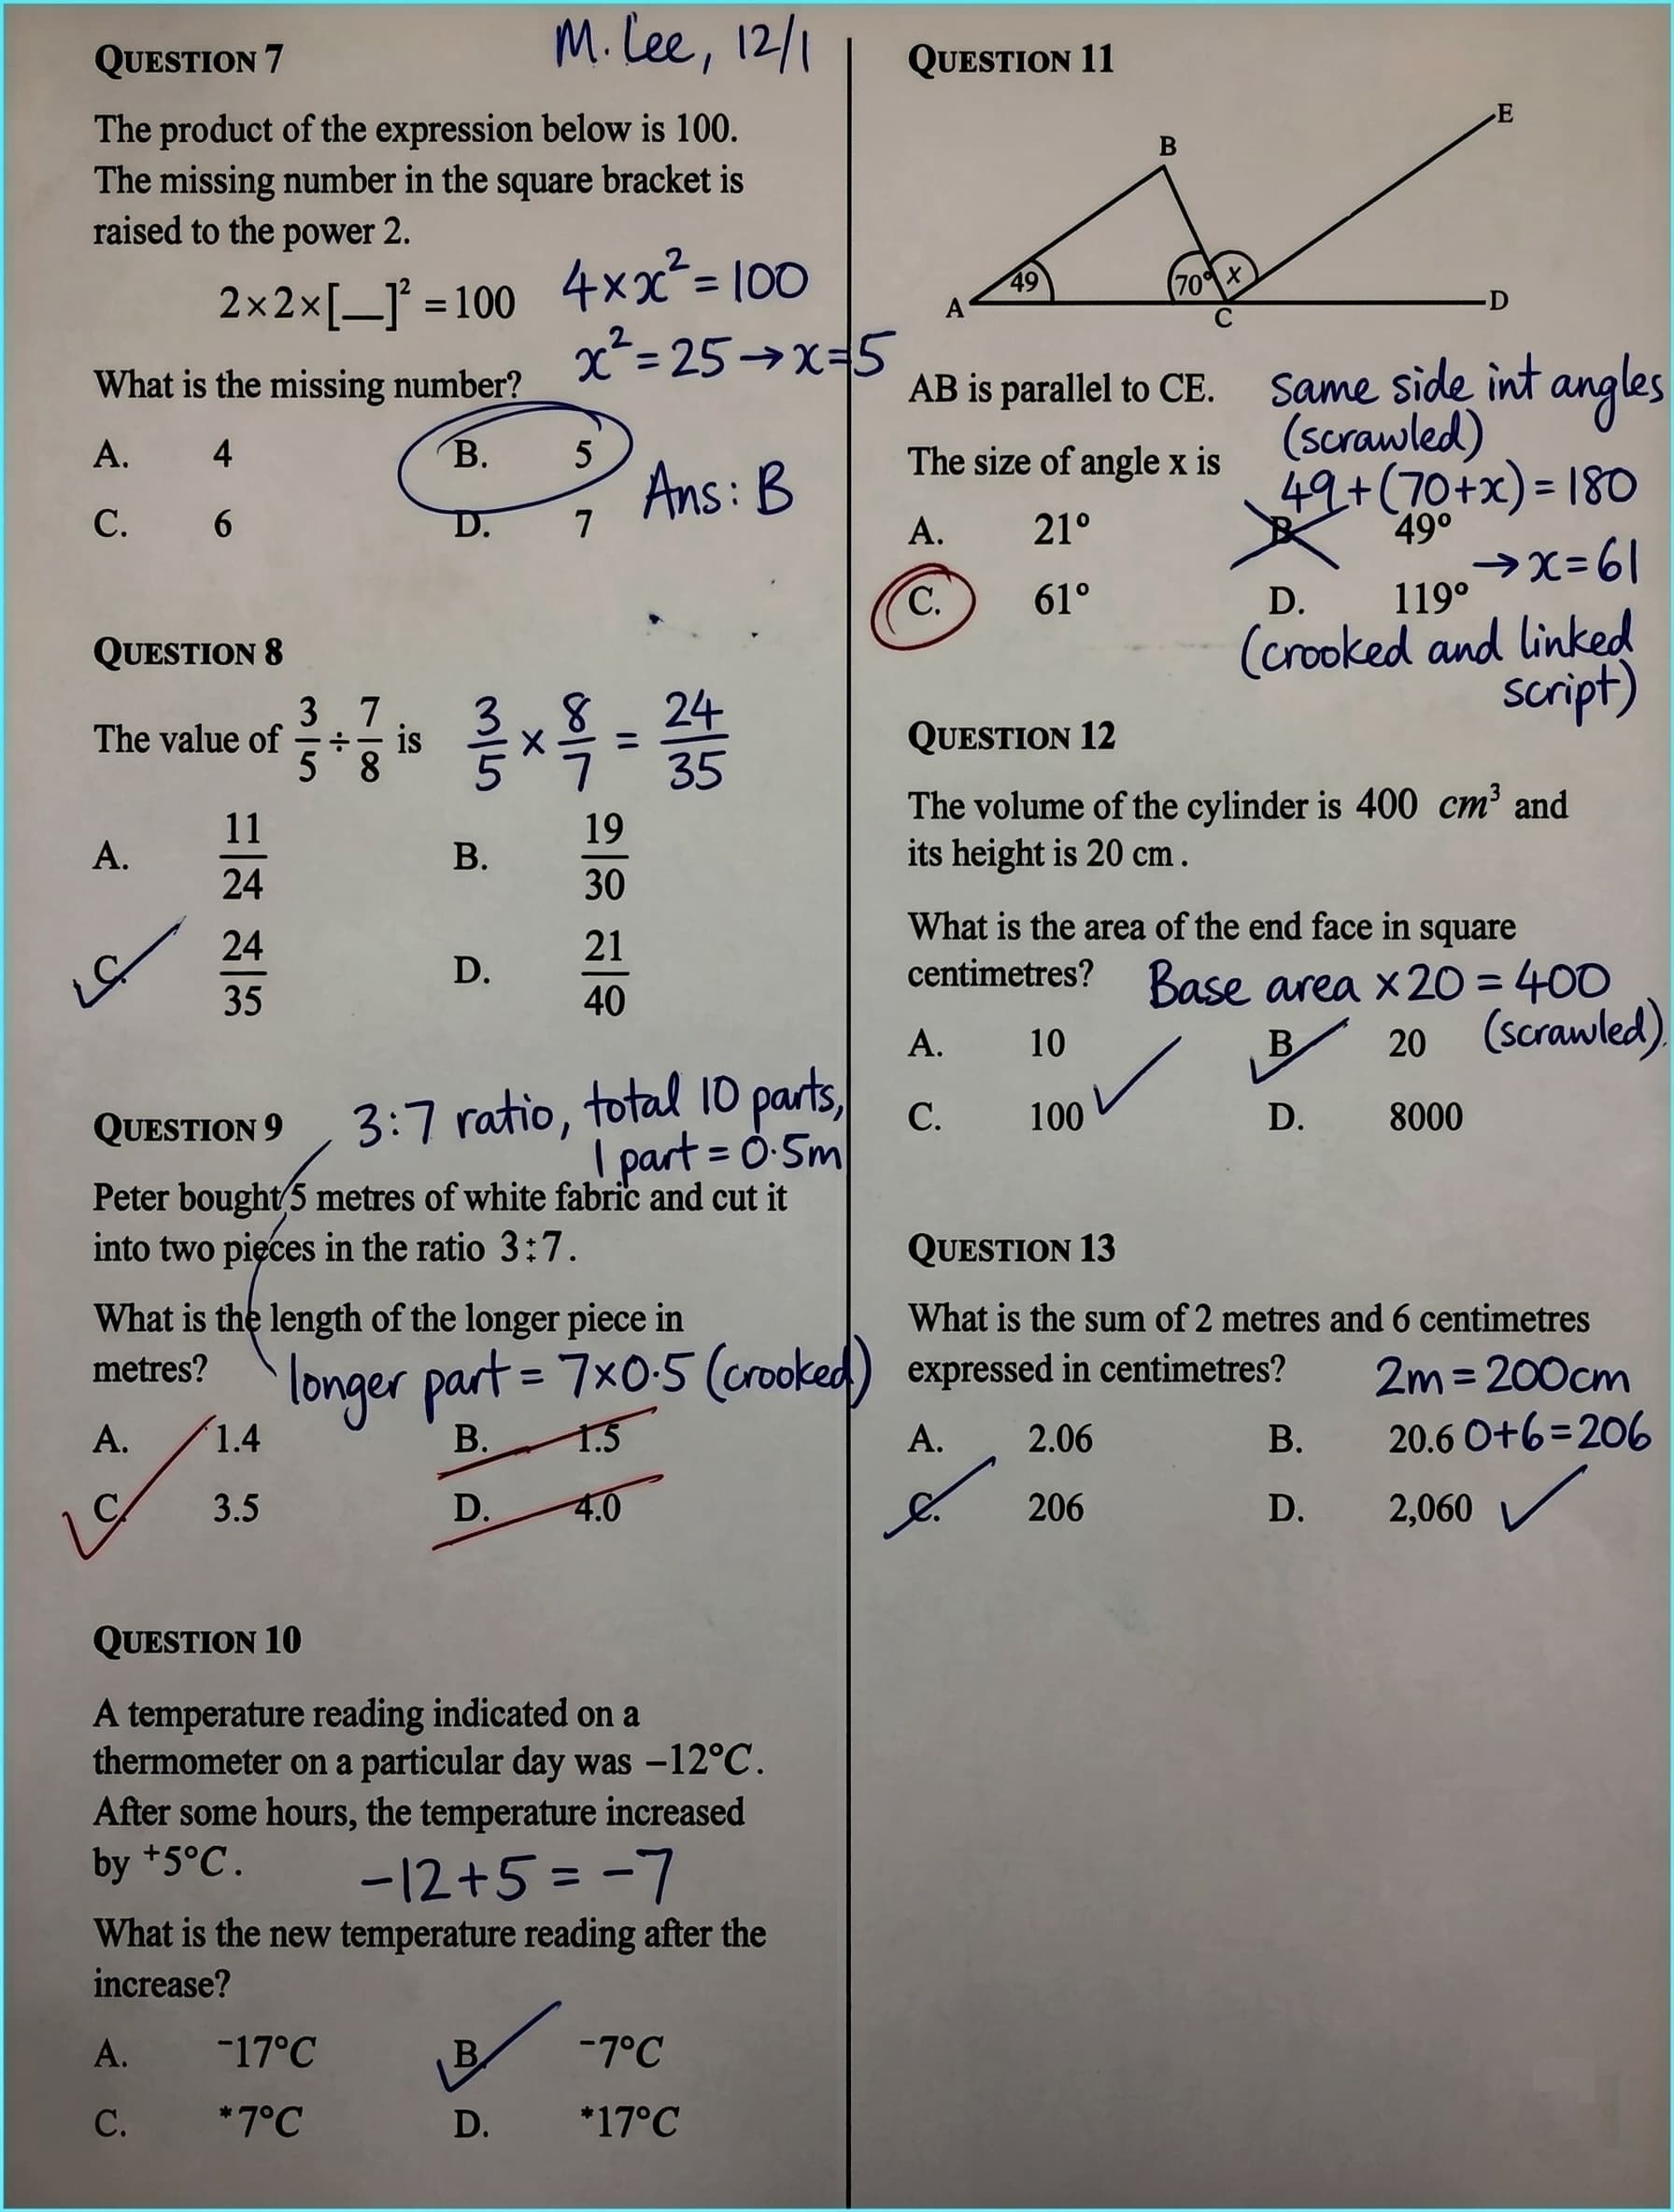 M. Lee, 12/1
QUESTION 7
The product of the expression below is 100.
The missing number in the square bracket is
raised to the power 2.
2×2×[__]² = 100
4×x² = 100
x² = 25 → x=5
What is the missing number?
A. 4 B. 5
Ans: B
C. 6 D. 7
QUESTION 8
The value of 3/5 ÷ 7/8 is
3/5 × 8/7 = 24/35
A. 11/24 B. 19/30
C. 24/35 D. 21/40
QUESTION 9
3:7 ratio, total 10 parts,
1 part = 0.5m
Peter bought 5 metres of white fabric and cut it
into two pieces in the ratio 3:7.
What is the length of the longer piece in
metres?
longer part = 7×0.5 (crooked)
A. 1.4 B. 1.5
C. 3.5 D. 4.0
QUESTION 10
A temperature reading indicated on a
thermometer on a particular day was −12°C.
After some hours, the temperature increased
by ⁺5°C.
−12+5 = −7
What is the new temperature reading after the
increase?
A. ⁻17°C B. ⁻7°C
C. *7°C D. *17°C
QUESTION 11
E
B
49
70°
x
A
C
D
AB is parallel to CE.
same side int angles
(scrawled)
The size of angle x is
49+(70+x) = 180
A. 21° B 49°
→ x = 61
C. 61° D. 119°
(crooked and linked
script)
QUESTION 12
The volume of the cylinder is 400 cm³ and
its height is 20 cm.
What is the area of the end face in square
centimetres?
Base area ×20 = 400
(scrawled).
A. 10 B 20
C. 100 D. 8000
QUESTION 13
What is the sum of 2 metres and 6 centimetres
expressed in centimetres?
2m = 200cm
A. 2.06 B. 20.6
0+6=206
C. 206 D. 2,060